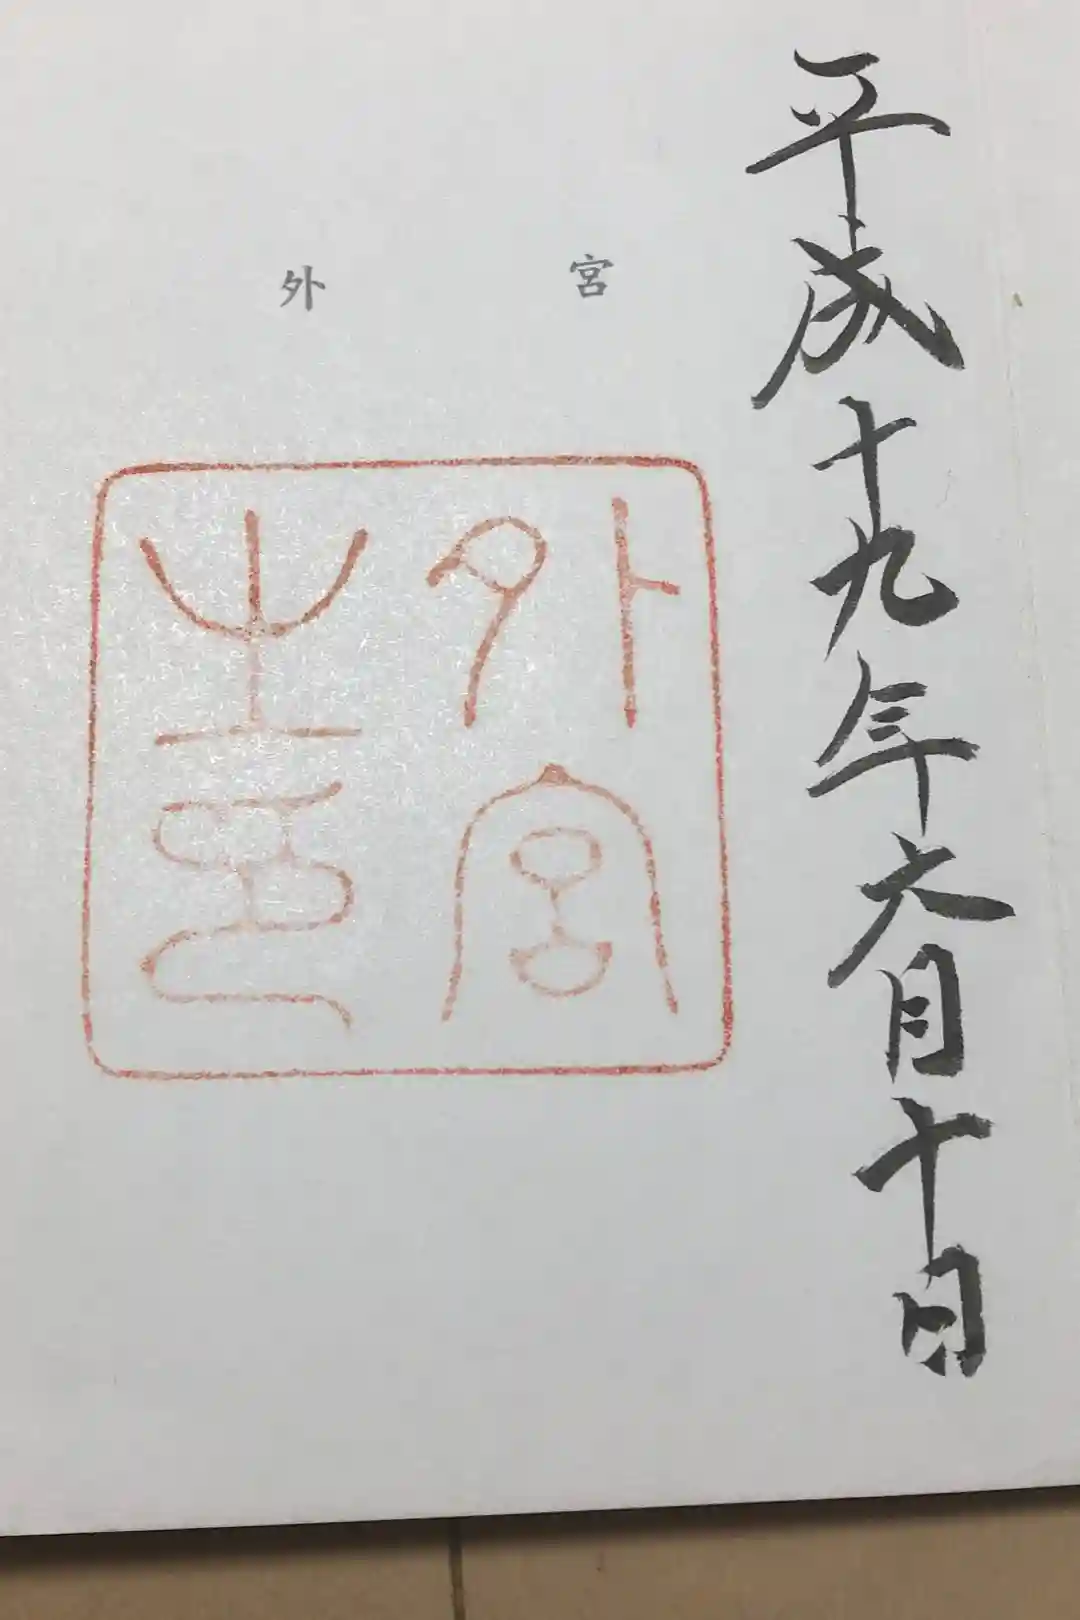 平成十九年六月十日
外宮
外宮之印